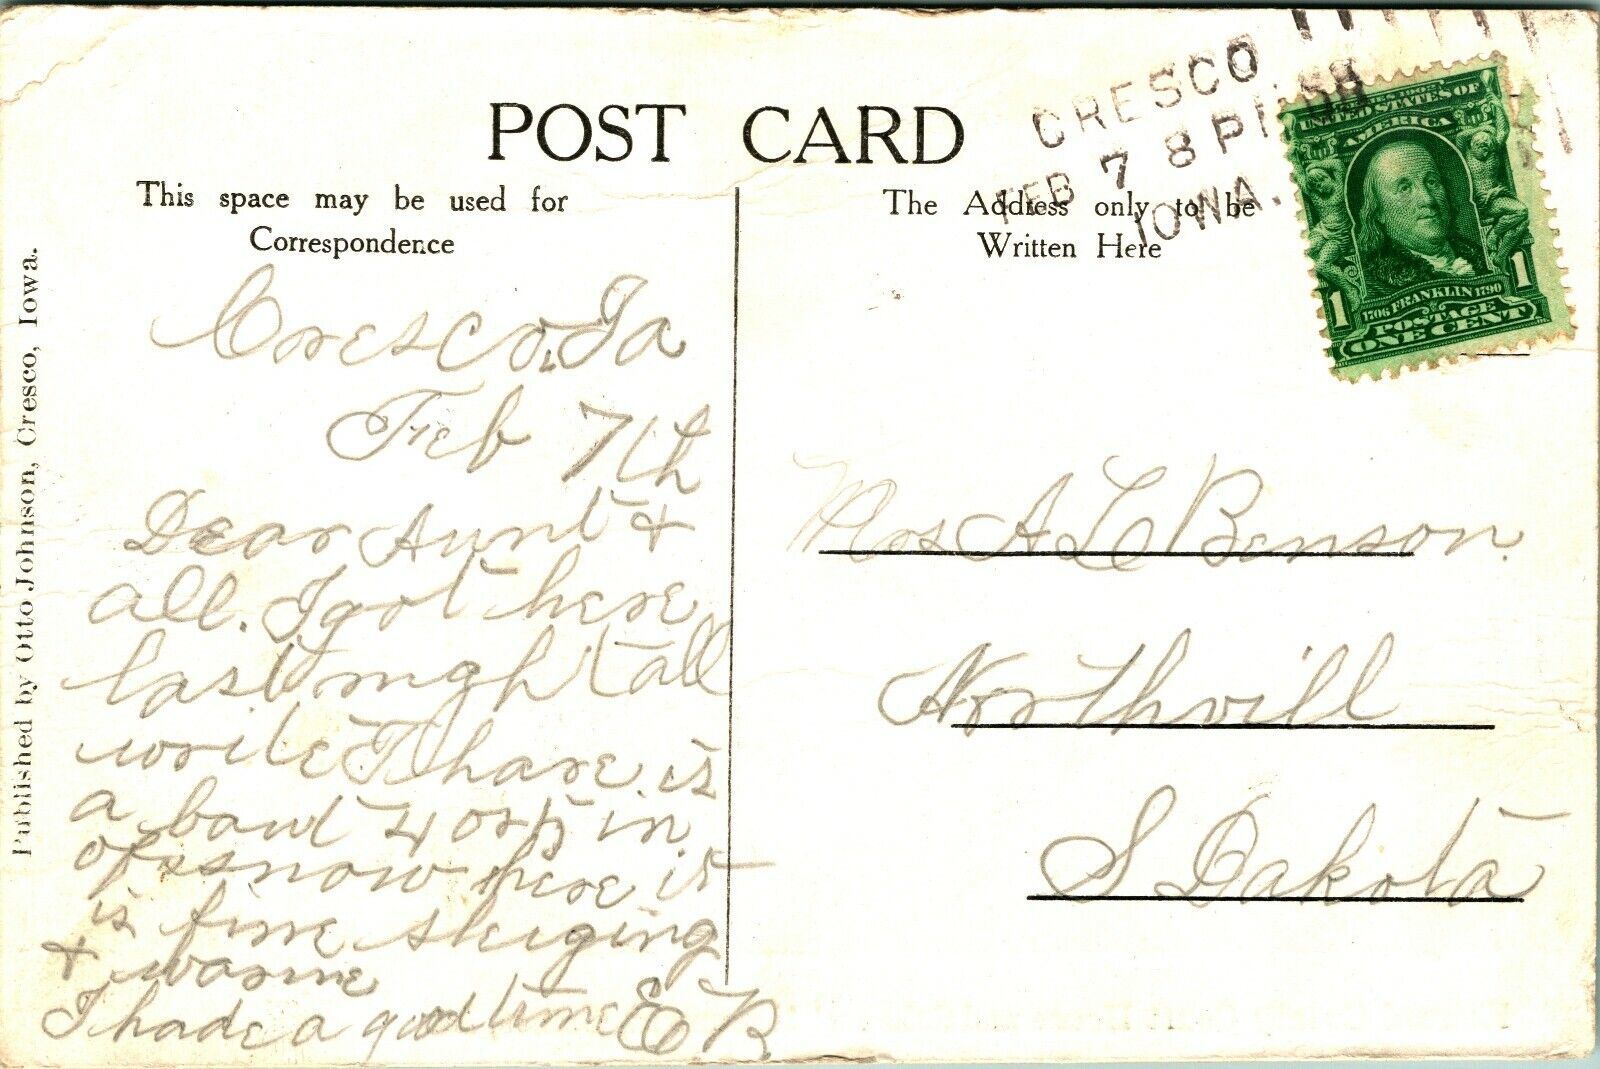 POST CARD
This space may be used for
Correspondence
The Address only to be
Written Here
CRESCO
FEB 7 8 P
IOWA.
SERIES 1902
UNITED STATES OF
AMERICA
1706 FRANKLIN 1790
1 1
POSTAGE
ONE CENT
Published by Otto Johnson, Cresco, Iowa.
Cresco, Ia
Feb 7th
Dear Aunt &
all. I got here
last night all
write Thare is
a bout 4 or 5 in
of snow here it
is fine sleiging
& warme
I hade a good time E B.
Mrs A L Benson.
Northvill
S Dakota